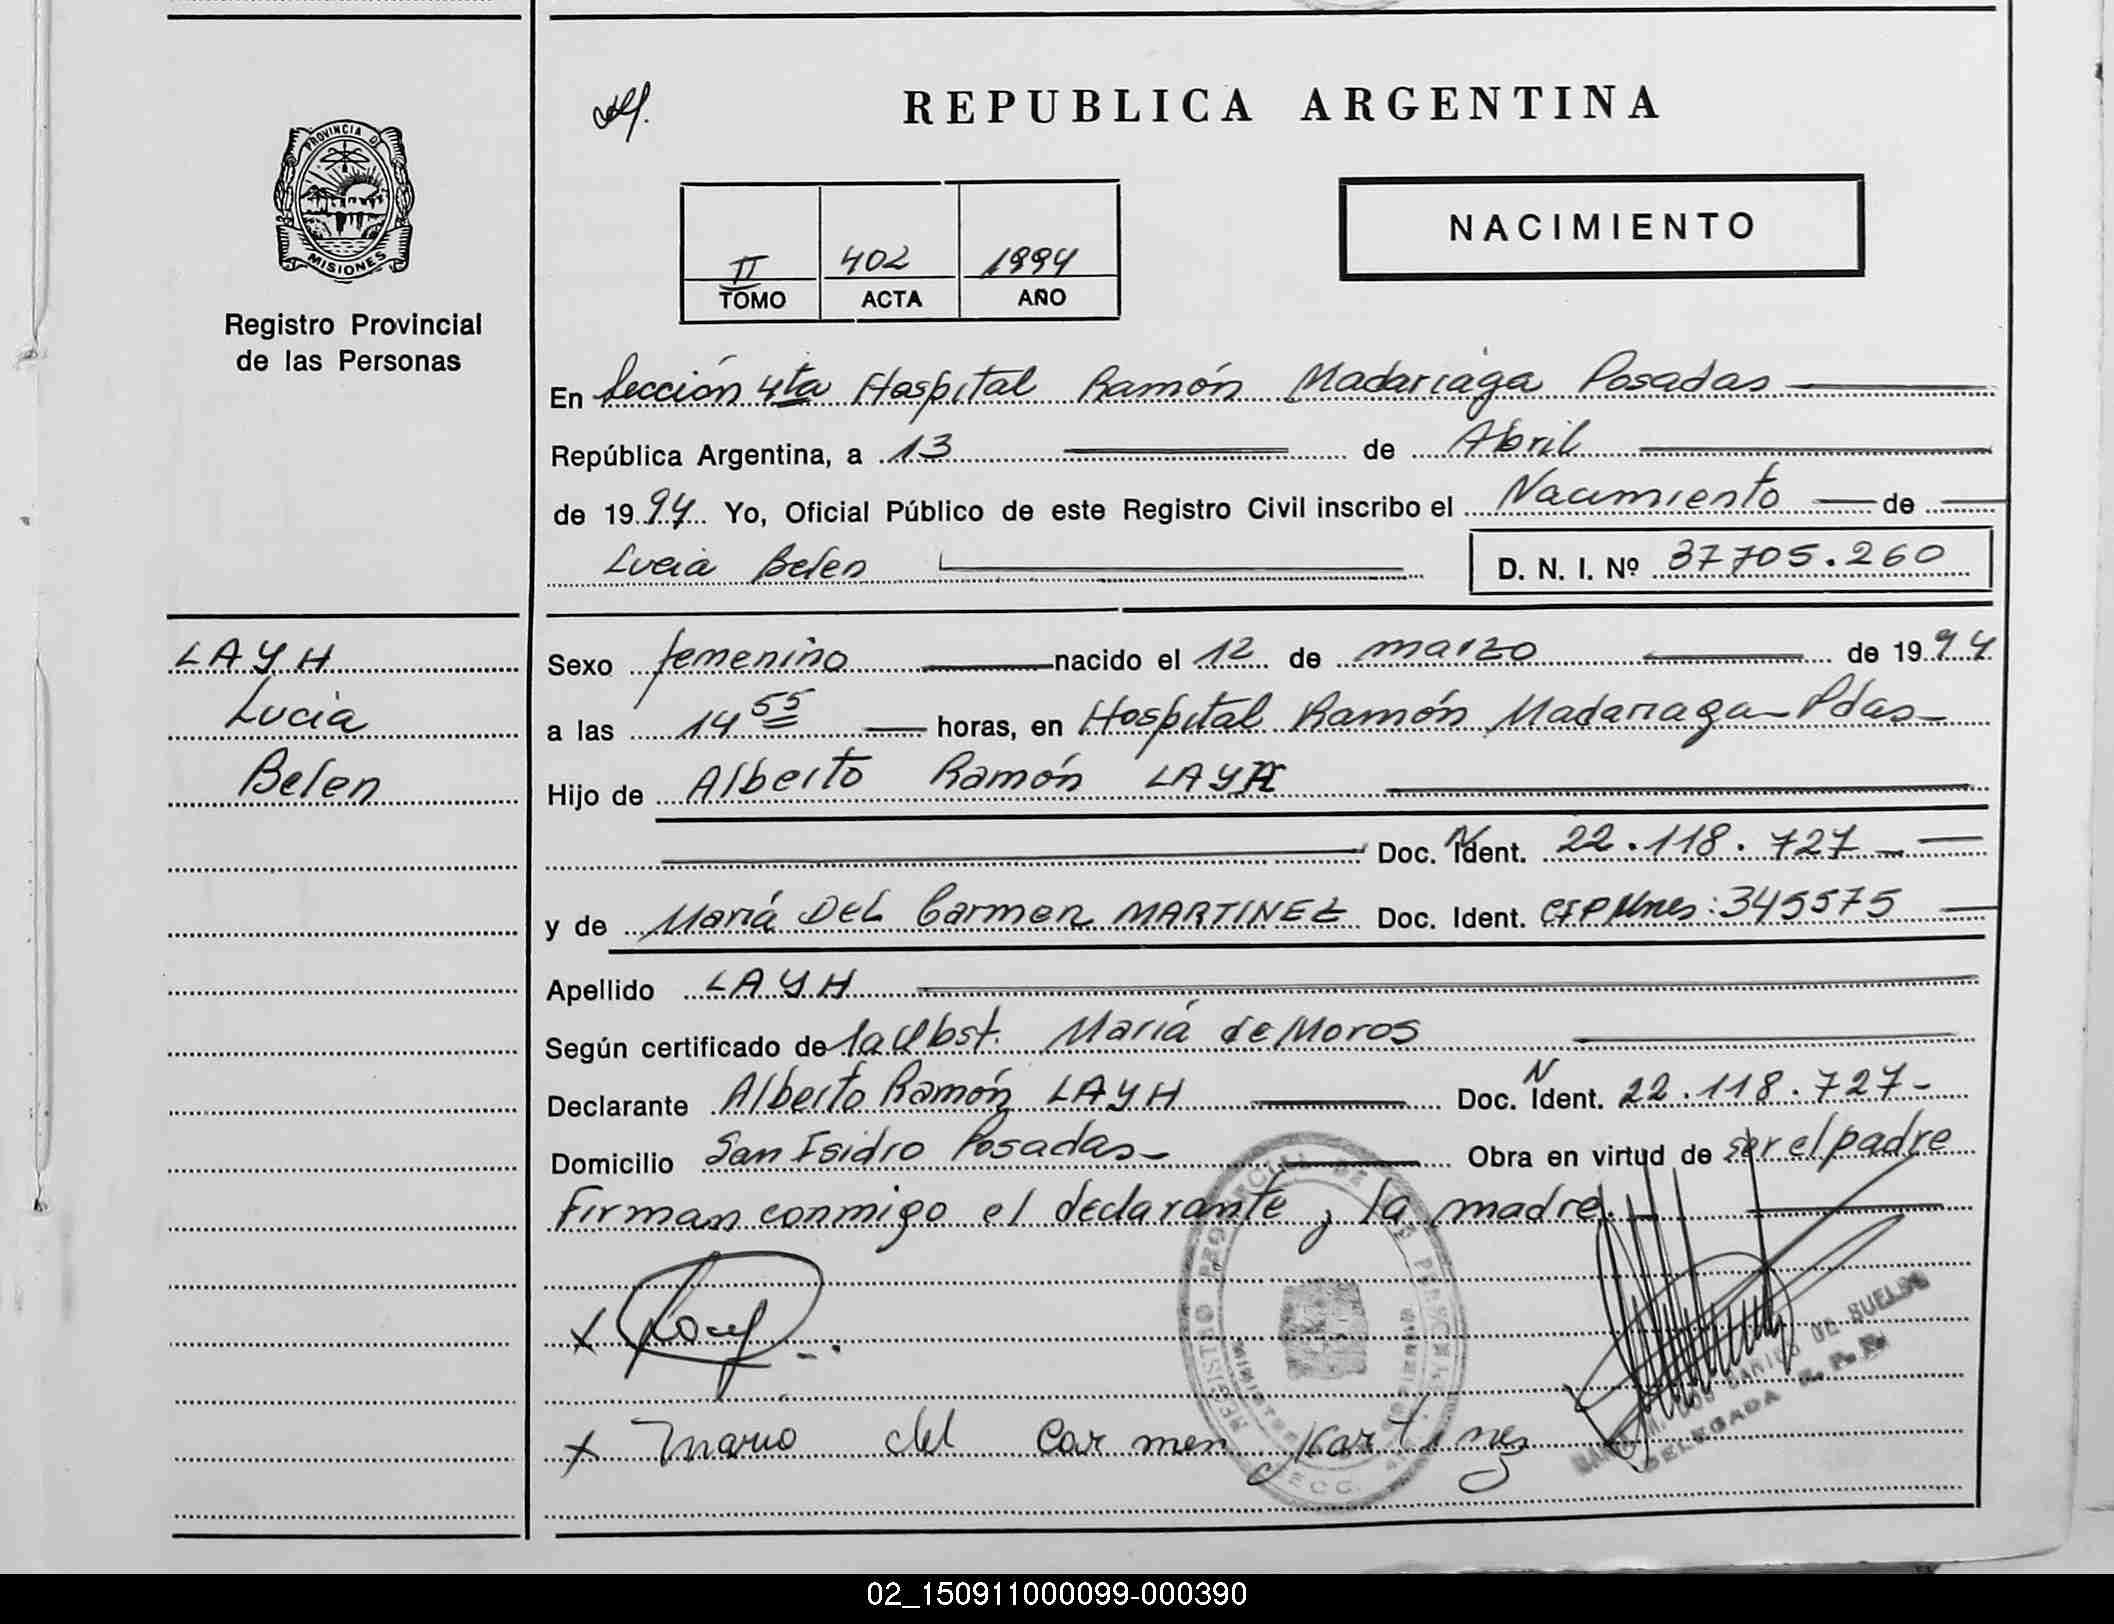 REPUBLICA ARGENTINA
PROVINCIA DE
MISIONES
Registro Provincial
de las Personas
II 402 1994
TOMO ACTA AÑO
NACIMIENTO
En Sección 4ta Hospital Ramón Madariaga Posadas
República Argentina, a 13 de Abril
de 1994 Yo, Oficial Público de este Registro Civil inscribo el Nacimiento de
Lucia Belen D. N. I. Nº 37705.260
LAYH
Lucia
Belen
Sexo femenino nacido el 12 de marzo de 1994
a las 14 55 horas, en Hospital Ramón Madariaga - Pdas
Hijo de Alberto Ramón LAYH
Doc. N Ident. 22.118.727
y de María DEL Carmen MARTINEZ Doc. Ident. : 345575
Apellido LAYH
Según certificado de la Obst. María de Moros
Declarante Alberto Ramón LAYH Doc. N Ident. 22.118.727-
Domicilio San Isidro Posadas- Obra en virtud de ser el padre
Firman conmigo el declarante y la madre.
x
x Maria del Carmen Martinez
REGISTRO PROVINCIAL DE LAS PERSONAS
DE BUELDO
DELEGADA R. P. P.
02_150911000099-000390